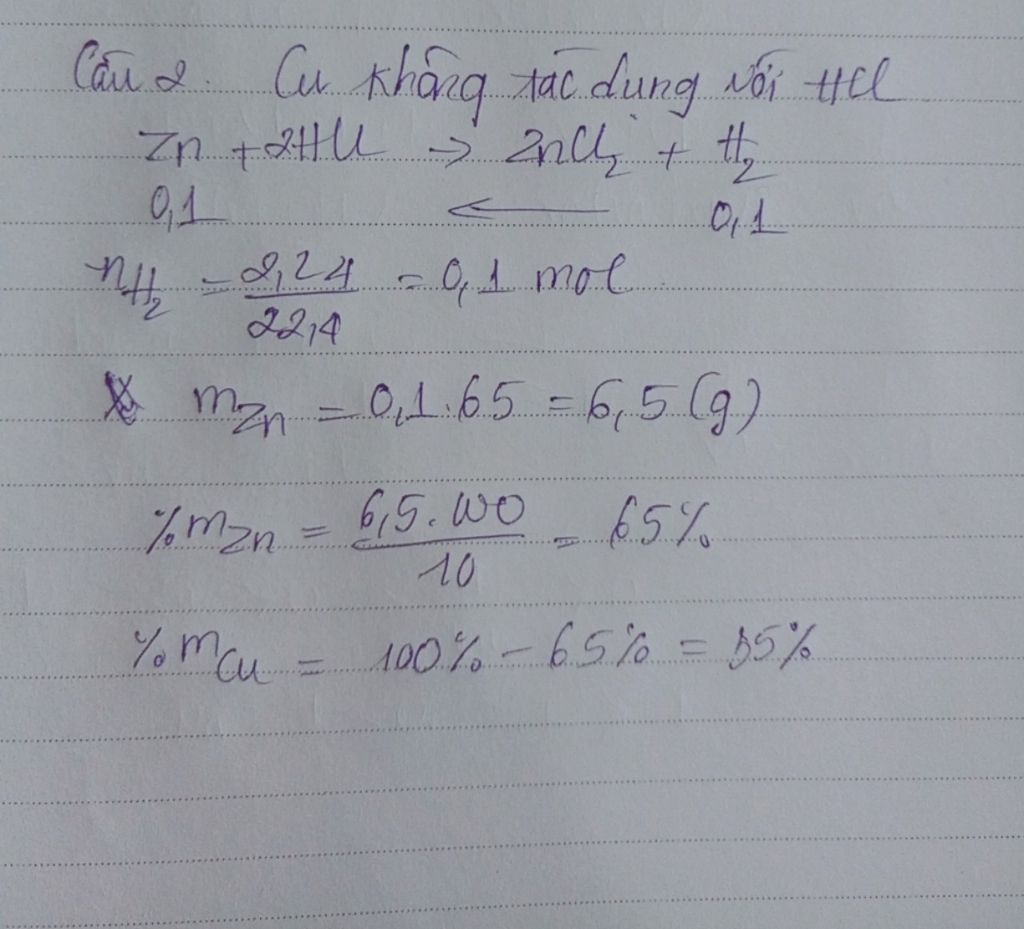 Câu 2. Cu không tác dụng với HCl
Zn + 2HCl → ZnCl₂ + H₂
0,1 ← 0,1
nH₂ = 2,24/22,4 = 0,1 mol
mZn = 0,1.65 = 6,5 (g)
%mZn = 6,5.100/10 = 65%
%mCu = 100% - 65% = 35%